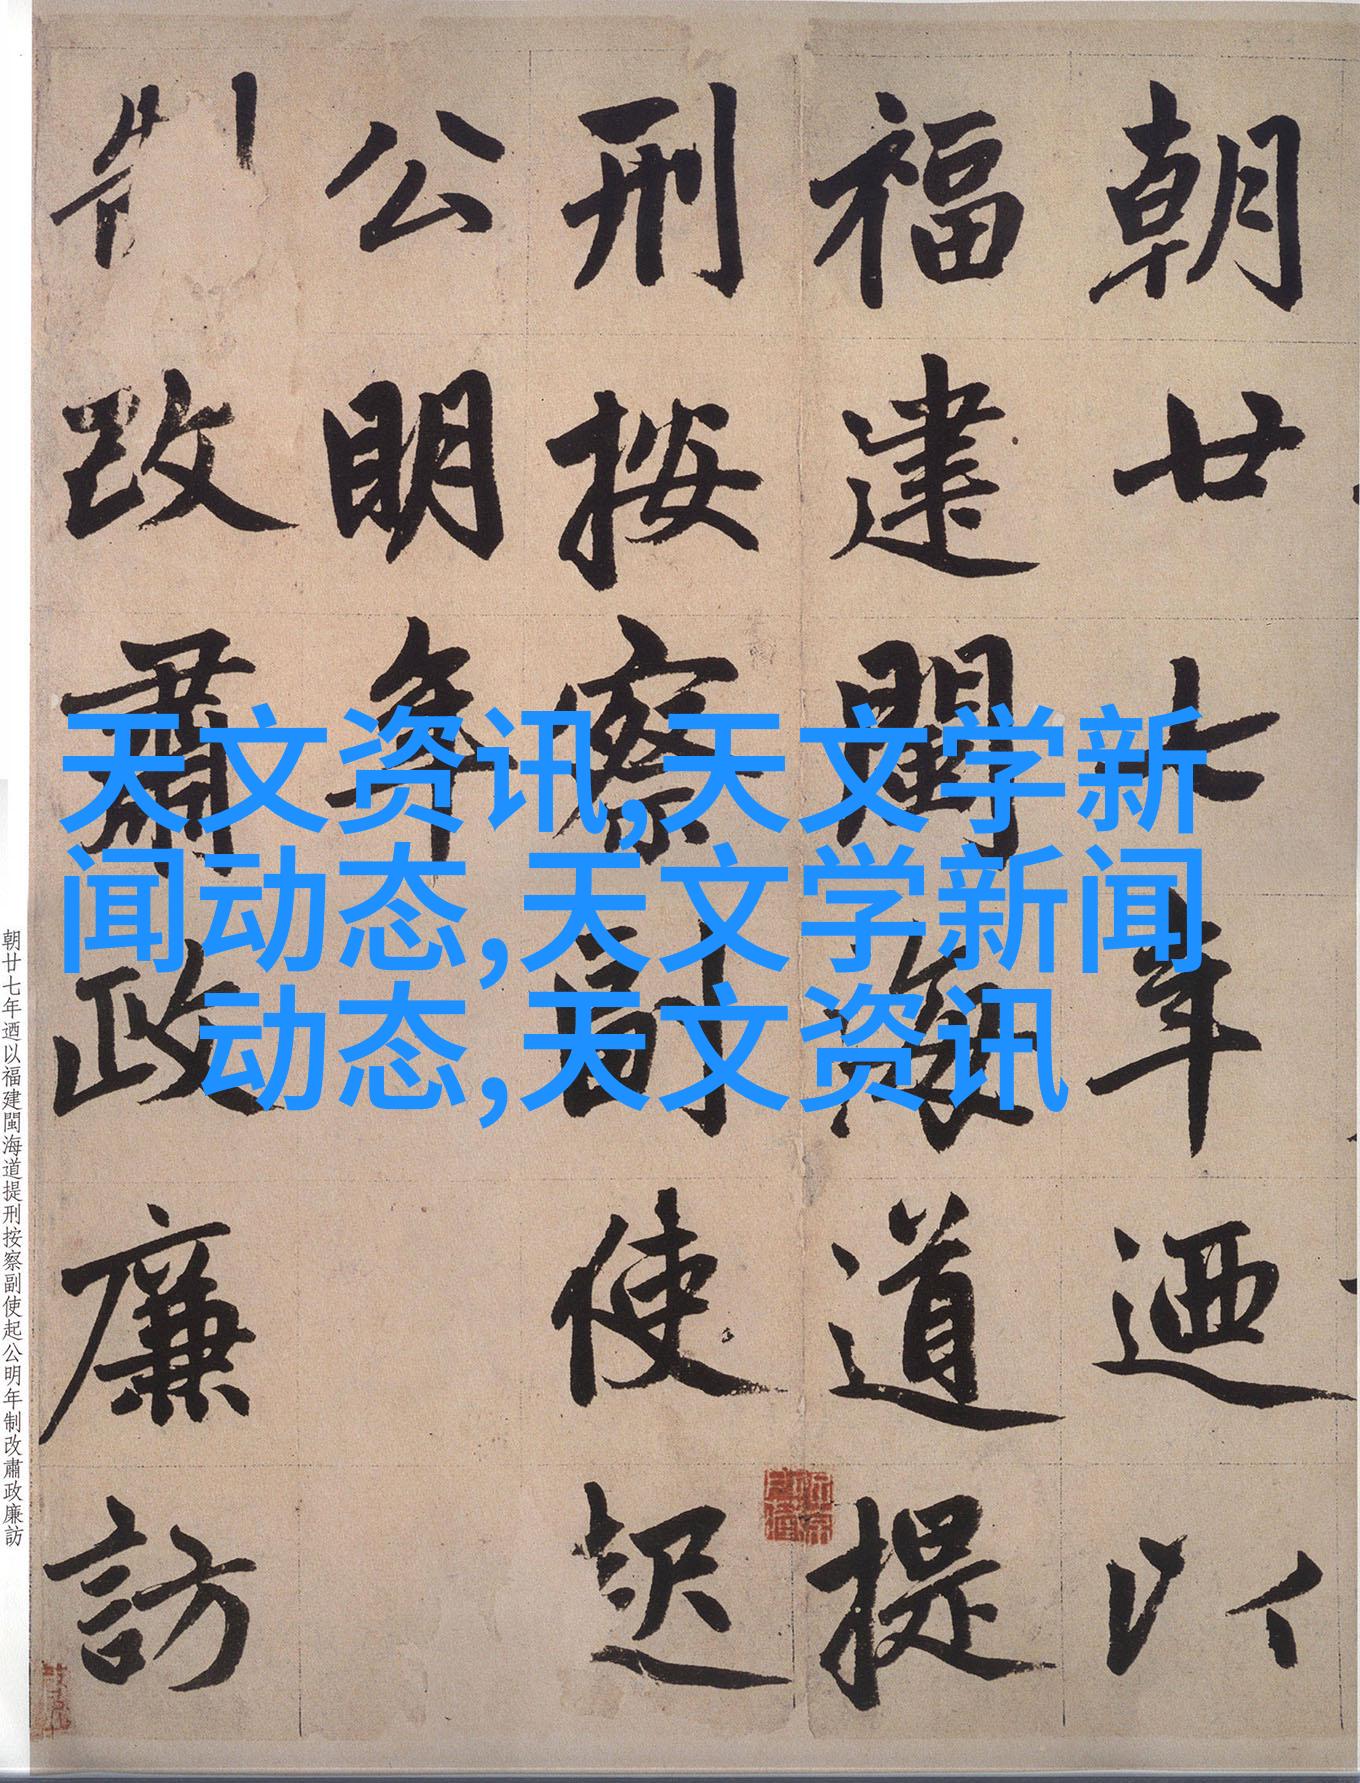 朝廿七年迺以
福建閩海道提
刑按察副使起
公明年
制改肅政廉訪
天文资讯,天文学新
闻动态,天文学新闻
动态,天文资讯
朝廿七年迺以福建閩海道提刑按察副使起公明年制改肅政廉訪